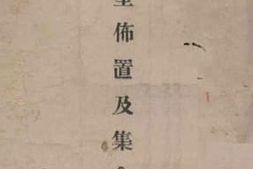 佈置及集